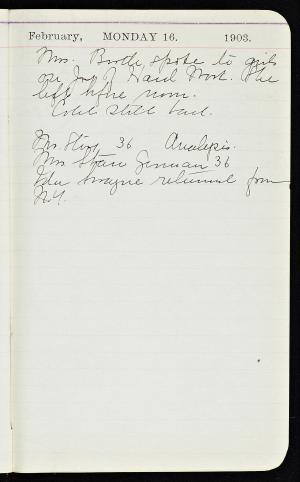 February, MONDAY 16. 1903.
Mrs. Booth spoke to girls
on Joy of Hard Work. She
left before noon.
Cold still bad.
36 Analysis.
German 36
Ida Swayne returned from
N.Y.